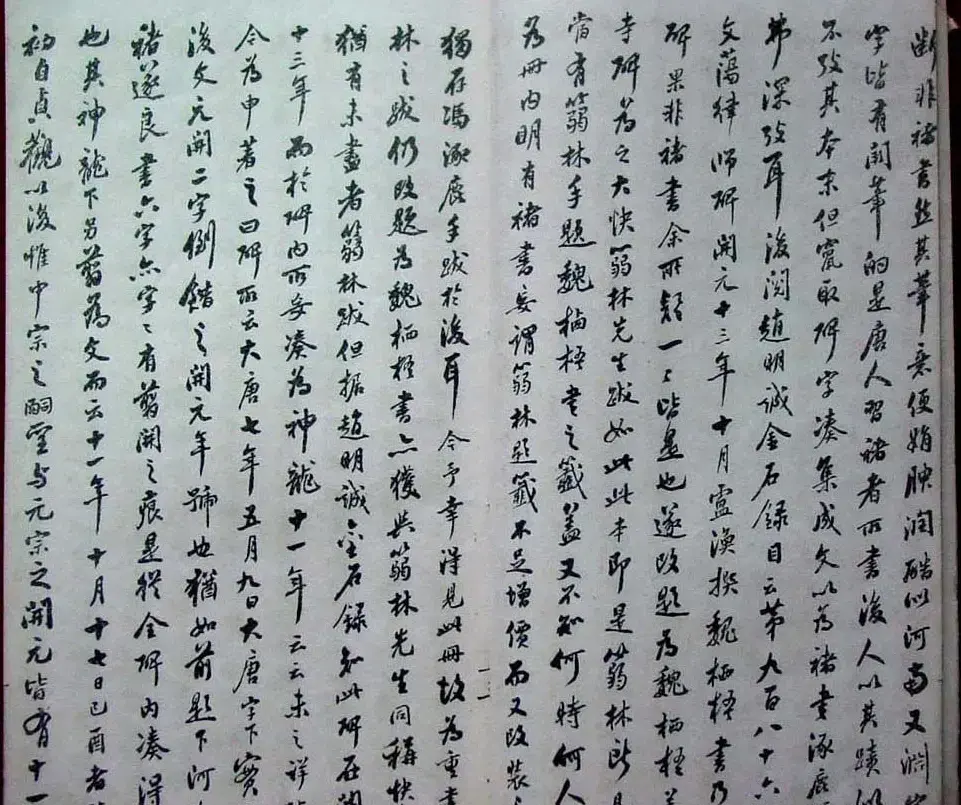 斷非褚書然其筆意便娟腴潤酷似河南又淵
字皆有闕筆的是唐人習褚者所書後人以其蹟
不攷其本末但竄取碑字湊集成文以為褚書涿鹿
弗深攷耳後閱趙明誠金石錄目云第九百八十六
文蕩律師碑開元十三年十月盧渙撰魏栖梧書乃
碑果非褚書余所疑一一皆是也遂改題為魏栖梧
寺碑為之大快翁林先生跋如此此本即是翁林所
當有翁林手題魏栖梧書之籤蓋又不知何時何人
為冊內明有褚書妄謂翁林題籤不足增價而又改裝
獨存馮涿鹿手跋於後耳今予幸得見此冊故為重書
林之跋仍改題為魏栖梧書亦獲與翁林先生同稱快
猶有未盡者翁林跋但據趙明誠金石錄知此碑在開
十三年而於碑內所妄湊為神龍十一年云云未之詳
今為申著之曰碑所云大唐七年五月九日大唐字下實
後文元開二字倒錯之開元年號也猶如前題下河
褚遂良書六字亦字字有翦開之痕是從全碑內湊得
也其神龍下另翦為文而云十一年十月十七日己酉者
初自貞觀以後惟中宗之嗣聖与元宗之開元皆有十一